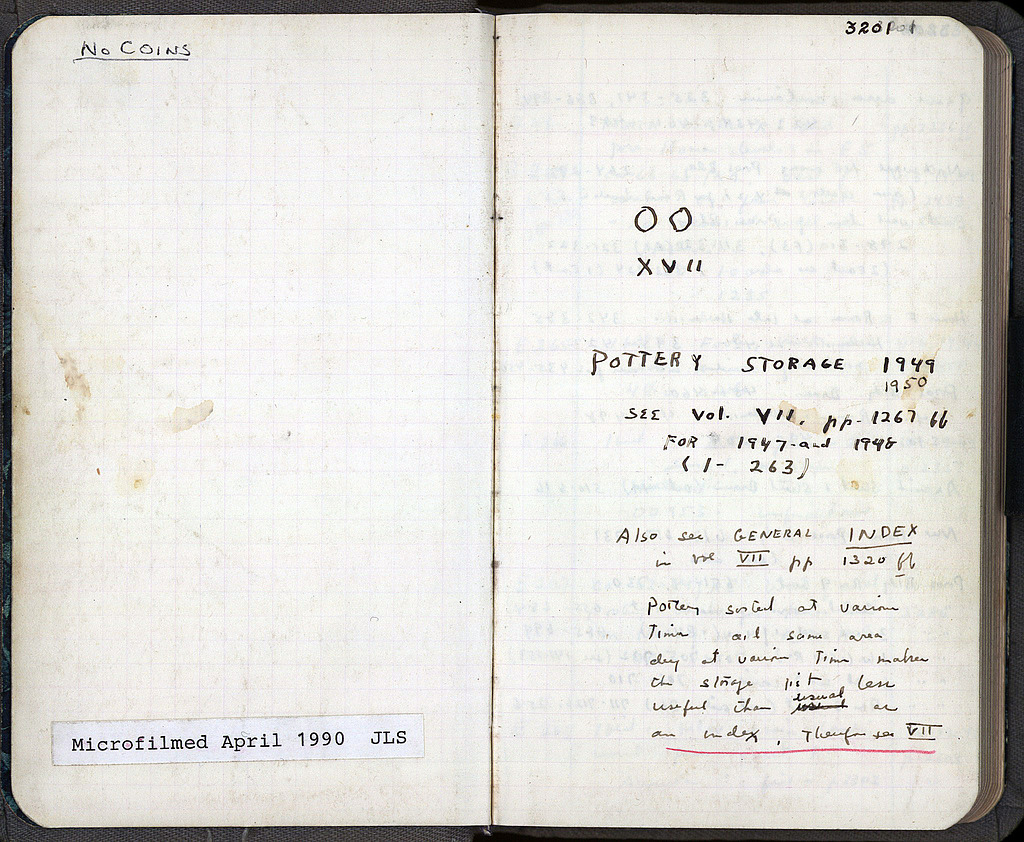 No COINS
Microfilmed April 1990 JLS
3201
OO
XVII
POTTERY STORAGE 1949
1950
SEE Vol. VII, pp. 1267 ff
FOR 1947 and 1948
(1 - 263)
Also see GENERAL INDEX
in vol VII pp 1320 ff
Pottery sorted at various
Time and same area
dug at various Time makes
the storage list less
useful than usual as
an index, Therefore see VII